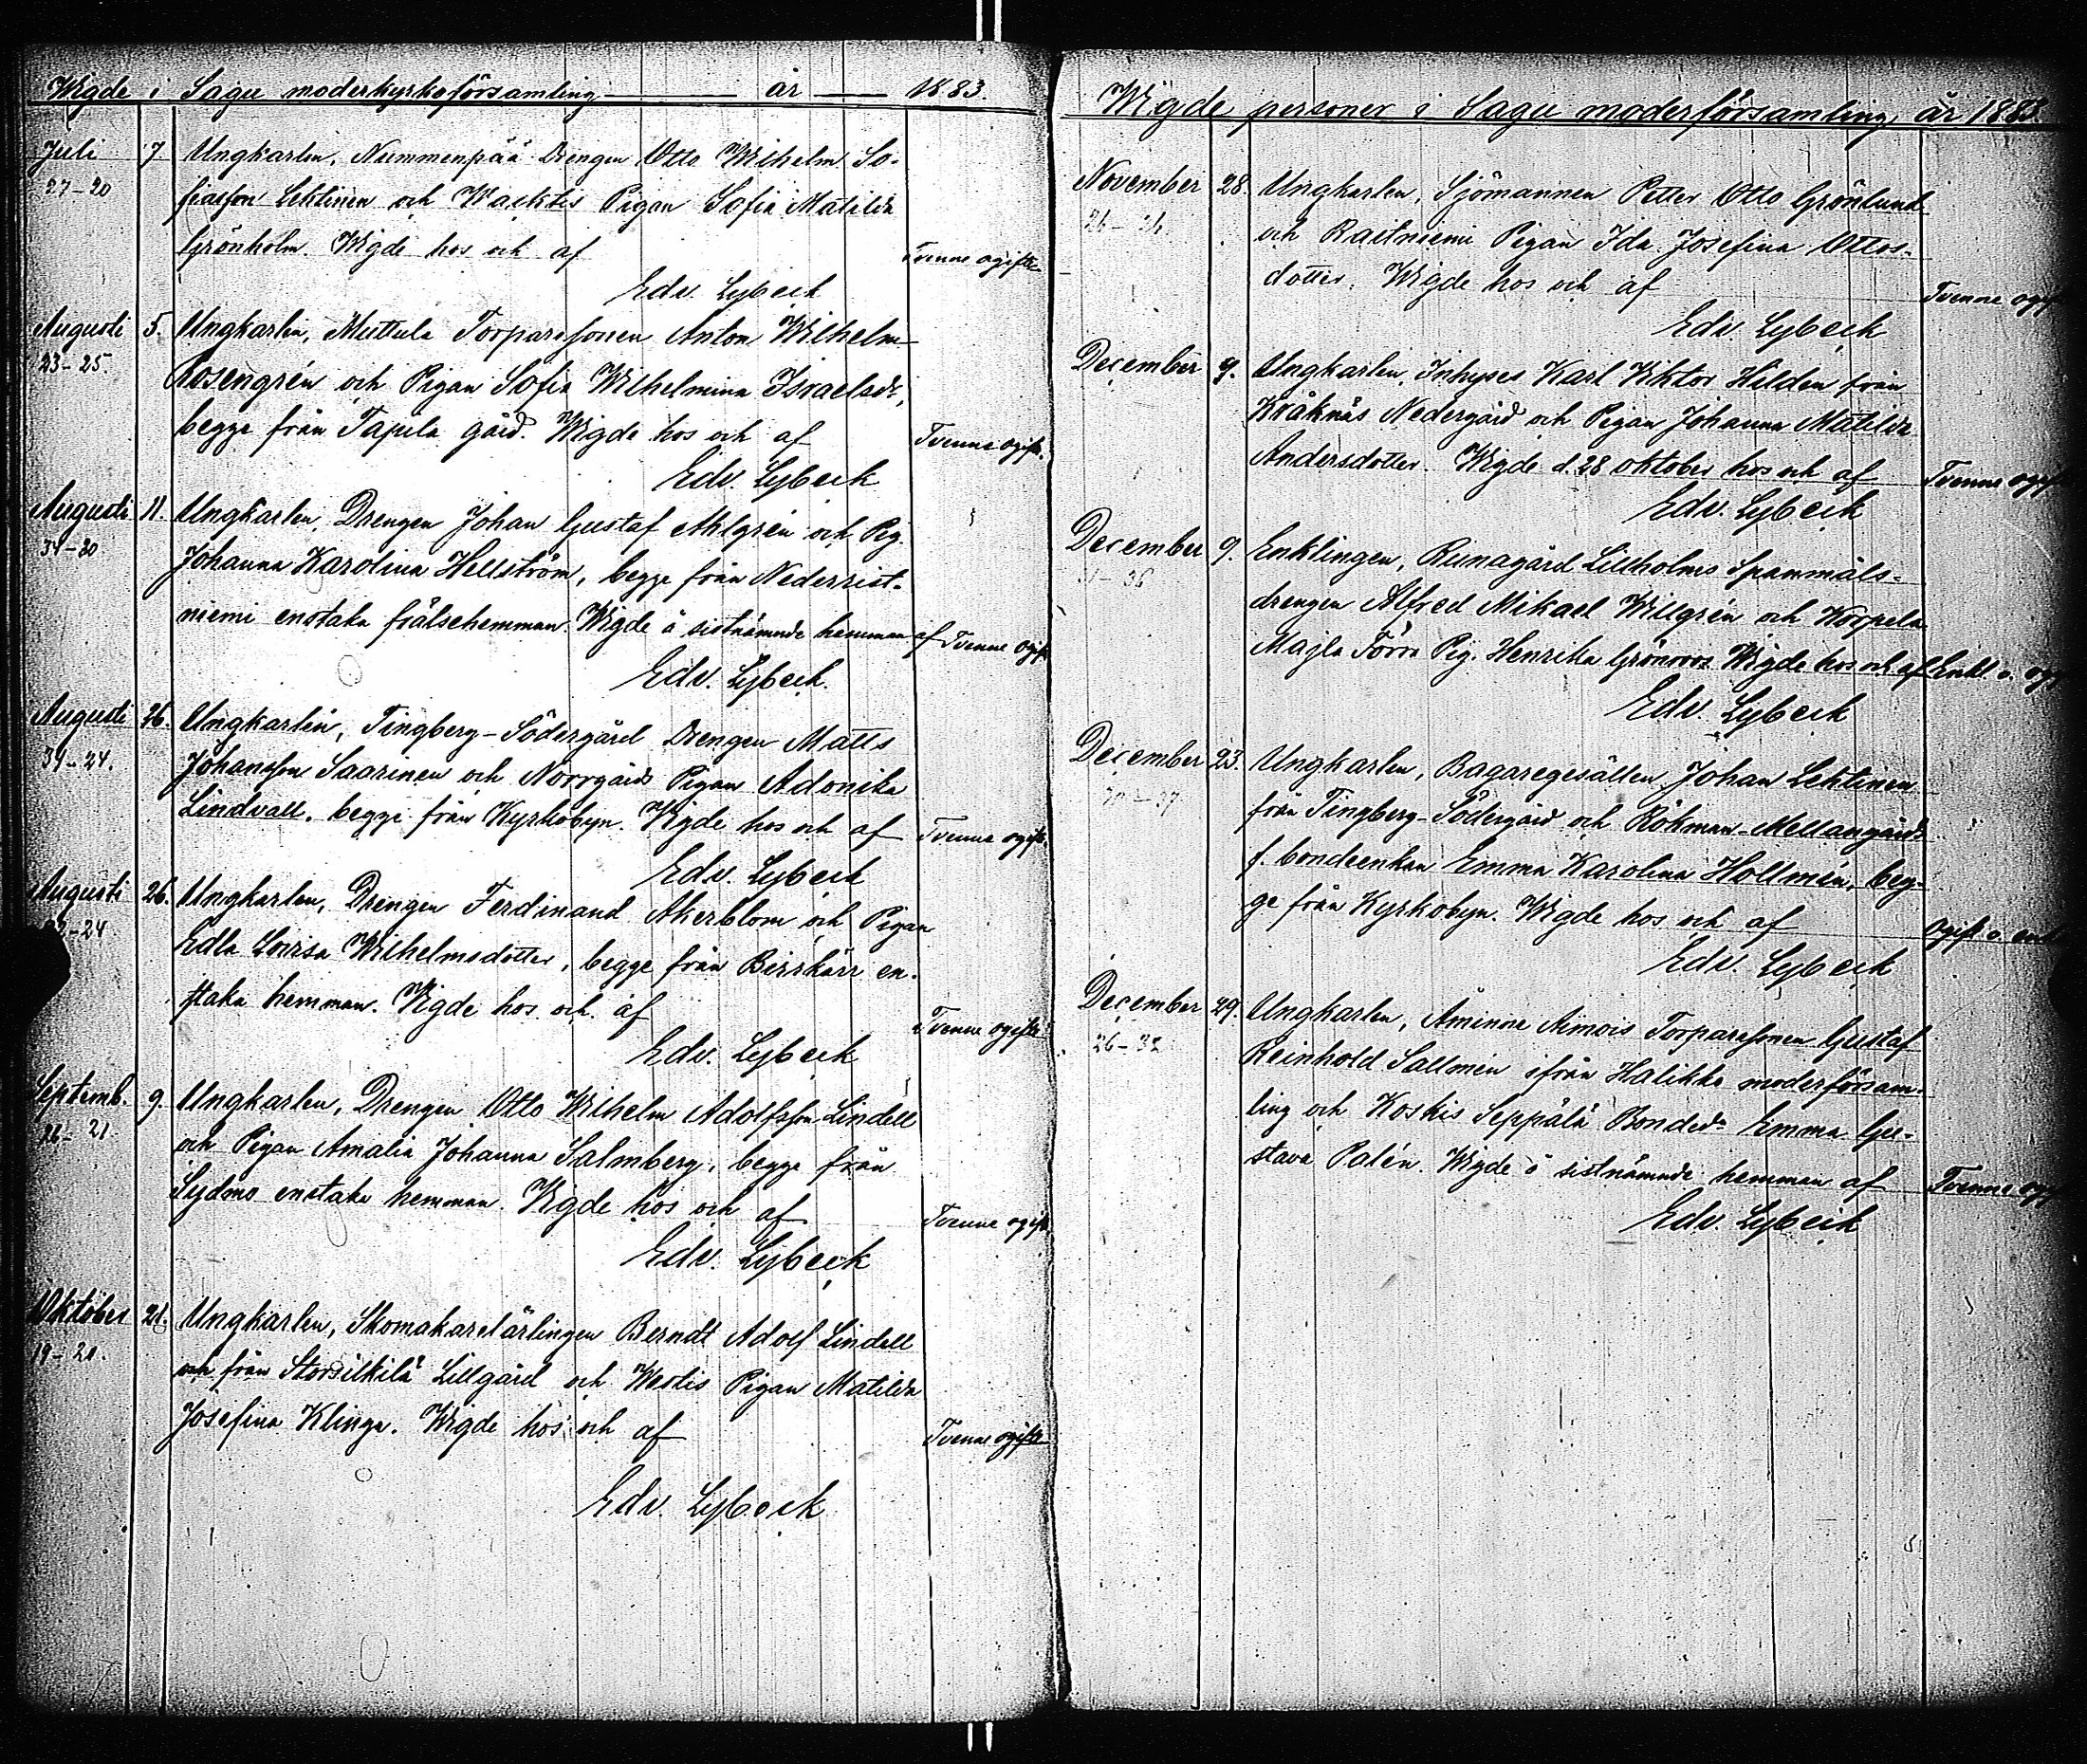 Wigde i Sagu moderkyrkoförsamling år 1883.
Juli 7 Ungkarlen, Nummenpää Drengen Otto Wilhelm So-
27-20
fiasson Lehtinen och Wacktis Pigan Sofia Matilda
Grönholm. Wigde hos och af Tvenne ogifte
Edv. Lybeck
Augusti 5. Ungkarlen, Muttula Torparesonen Anton Wilhelm
23-25.
Rosengrén och Pigan Sofia Wilhelmina Israelsdr,
begge från Tapila gård. Wigde hos och af Tvenne ogift.
Edv. Lybeck
Augusti 11. Ungkarlen, Drengen Johan Gustaf Ahlgrén och Pig.
34-20
Johanna Karolina Hellström, begge från Nederrist-
niemi enstaka frälsehemman. Wigde å sistnämnde hemman af Tvenne ogift
Edv. Lybeck.
Augusti 26. Ungkarlen, Tingberg-Södergård Drengen Matts
34-24.
Johansson Saarinen och Norrgårds Pigan Adonika
Lindvall, begge från Kyrkobyn. Wigde hos och af Tvenne ogift.
Edv. Lybeck
Augusti 26. Ungkarlen, Drengen Ferdinand Akerblom och Pigan
-24
Edla Lovisa Wilhelmsdotter, begge från Birskärr en-
staka hemman. Wigde hos och af Tvenne ogifte
Edv. Lybeck
Septemb. 9. Ungkarlen, Drengen Otto Wilhelm Adolfsson Lindell
26-21
och Pigan Amalia Johanna Salmberg, begge från
Sydmo enstaka hemman. Wigde hos och af Tvenne ogift
Edv. Lybeck
Oktober 21. Ungkarlen, Skomakarelärlingen Berndt Adolf Lindell
19-21.
från Storsilkilä Lillgård och Westis Pigan Matilda
Josefina Klinga. Wigde hos och af Tvenne ogifte
Edv. Lybeck
Wigde personer i Sagu moderförsamling år 1883
November 28. Ungkarlen, Sjömannen Petter Otto Grönlund
och Raitniemi Pigan Ida Josefina Ottos-
dotter. Wigde hos och af Tvenne ogif
Edv. Lybeck
December 9. Ungkarlen, Inhyses Karl Wiktor Hildén från
Kråknäs Nedergård och Pigan Johanna Matilda
Andersdotter. Wigde d. 28 oktober hos och af Tvenne ogif
Edv. Lybeck
December 9. Enklingen, Runagård Lillholms Spanmåls-
-36
drengen Alfred Mikael Willgrén och Korpela
Majla Pig. Henrika Grönroos. Wigde hos och af Enkl. o. og
Edv. Lybeck
December 23. Ungkarlen, Bagaregesällen Johan Lehtinen
-37
från Tingberg-Södergård och Rökman-Mellangårds
f. bondeenkan Emma Karolina Hollmén, beg-
ge från Kyrkobyn. Wigde hos och af Ogift o. enk
Edv. Lybeck
December 29. Ungkarlen, Åminne Torparesonen Gustaf
26-32
Reinhold Sallmén ifrån Halikko moderförsam-
ling och Koskis Seppälä Bonded. Emma Gu-
stava Palén. Wigde å sistnämnde hemman af Tvenne og
Edv. Lybeck